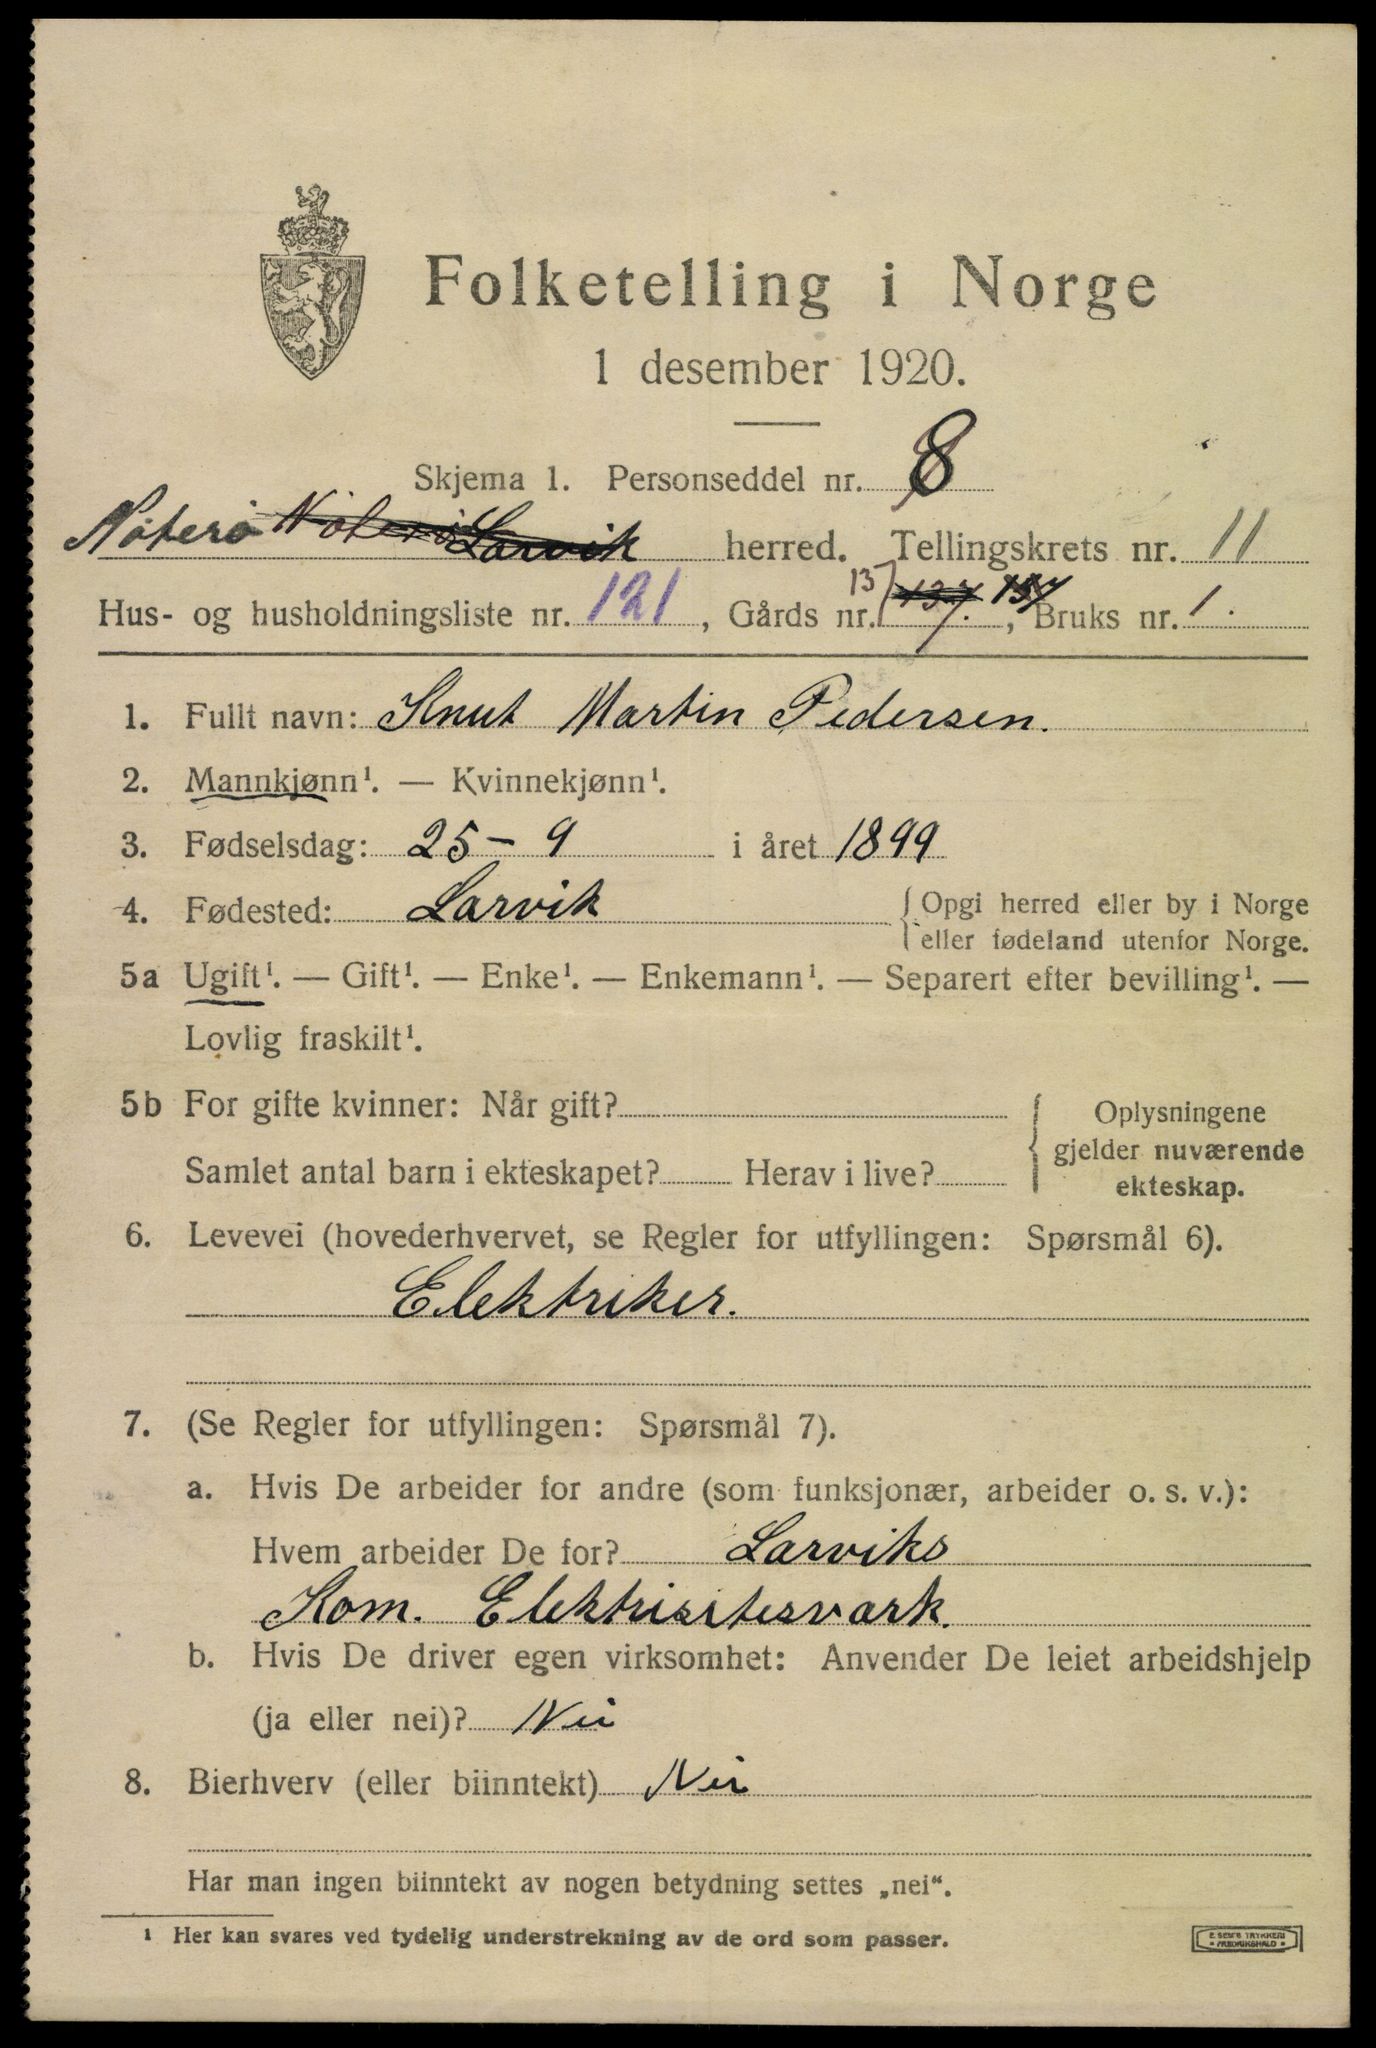 Folketelling i Norge
1 desember 1920.
Skjema 1. Personseddel nr. 8
Nøterø Nøterø Larvik herred. Tellingskrets nr. 11
Hus- og husholdningsliste nr. 121, Gårds nr. 137 137. 137, Bruks nr. 1.
1. Fullt navn: Knut Martin Pedersen.
2. Mannkjønn¹. — Kvinnekjønn¹.
3. Fødselsdag: 25 – 9 i året 1899
4. Fødested: Larvik { Opgi herred eller by i Norge
eller fødeland utenfor Norge.
5a Ugift¹. — Gift¹. — Enke¹. — Enkemann¹. — Separert efter bevilling¹. —
Lovlig fraskilt¹.
5b For gifte kvinner: Når gift? { Oplysningene
gjelder nuværende
Samlet antal barn i ekteskapet? Herav i live? ekteskap.
6. Levevei (hovederhvervet, se Regler for utfyllingen: Spørsmål 6).
Elektriker.
7. (Se Regler for utfyllingen: Spørsmål 7).
a. Hvis De arbeider for andre (som funksjonær, arbeider o. s. v.):
Hvem arbeider De for? Larviks
Kom. Elektrisitesværk.
b. Hvis De driver egen virksomhet: Anvender De leiet arbeidshjelp
(ja eller nei)? Nei
8. Bierhverv (eller biinntekt) Nei
Har man ingen biinntekt av nogen betydning settes „nei“.
¹ Her kan svares ved tydelig understrekning av de ord som passer.
E. SEM'S TRYKKERI
• FREDRIKSHALD •